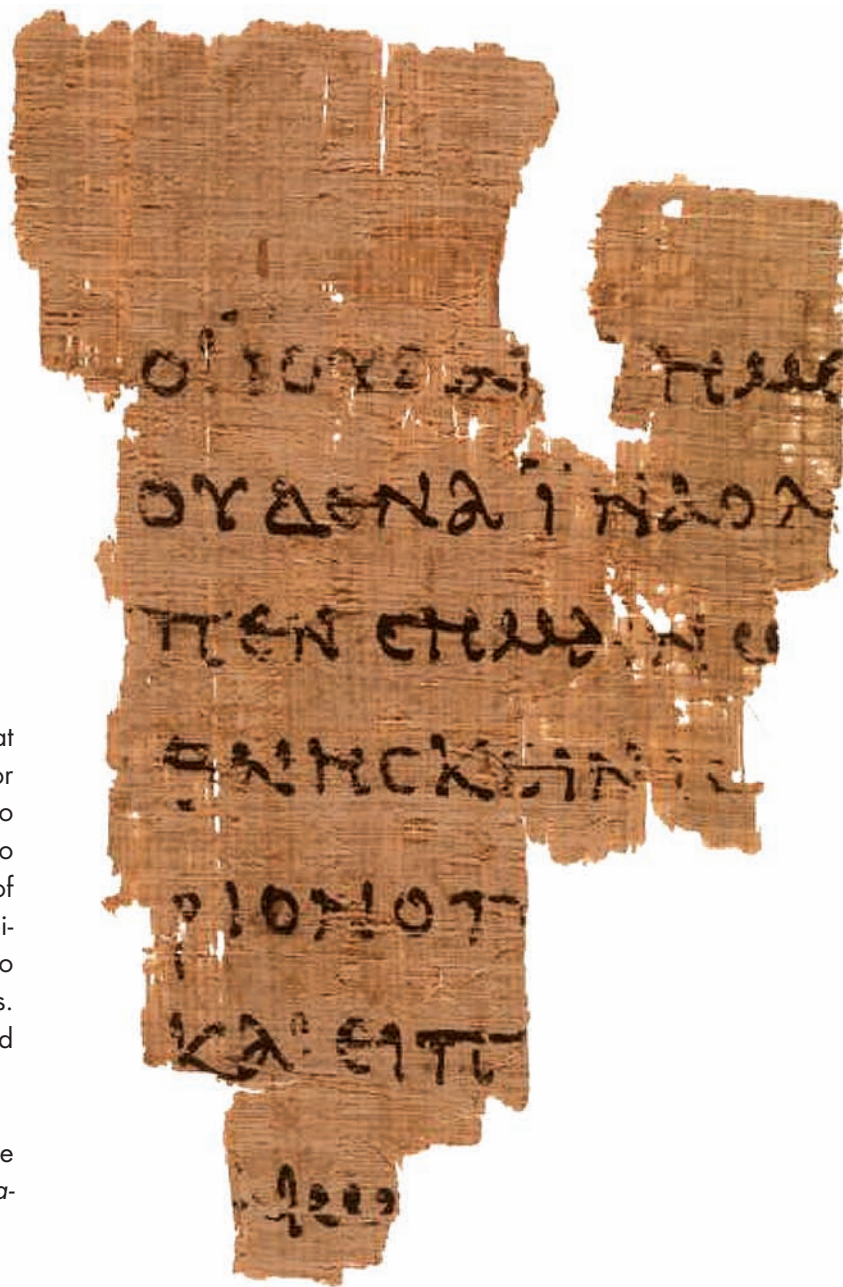 ΟΙ ΙΟΥΔΑΙ ΗΜΕ
ΟΥΔΕΝΑ ΪΝΑ Ο Λ
ΠΕΝ ϹΗΜΑΙΝΩ
ΘΝΗϹΚΕΙΝ ΙϹ
ΡΙΟΝ Ο Π
ΚΑΙ ΕΙΠ
at
or
o
o
of
i-
o
s.
d
e
a-